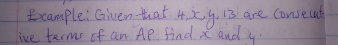 Example: Given that 4, x, y, 13 are consecut
ive terms of an AP. find x and y.